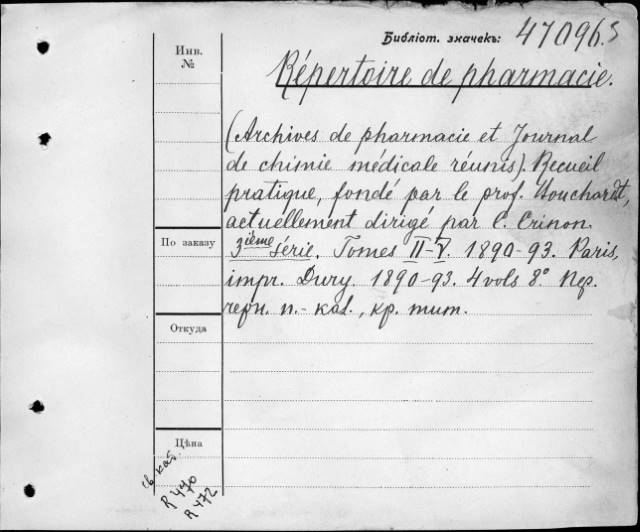 Библіот. значекъ: 47096 S
Инв.
№
Répertoire de pharmacie.
(Archives de pharmacie et Journal
de chimie médicale réunis). Recueil
pratique, fondé par le prof. Bouchardat,
actuellement dirigé par C. Crinon.
3ième Série. Tomes II-V. 1890-93. Paris,
По заказу
impr. Dury. 1890-93. 4 vols 8° Пер.
черн. п.-кал., кр. тит.
Откуда
Цѣна
св кат.
R 470
R 472